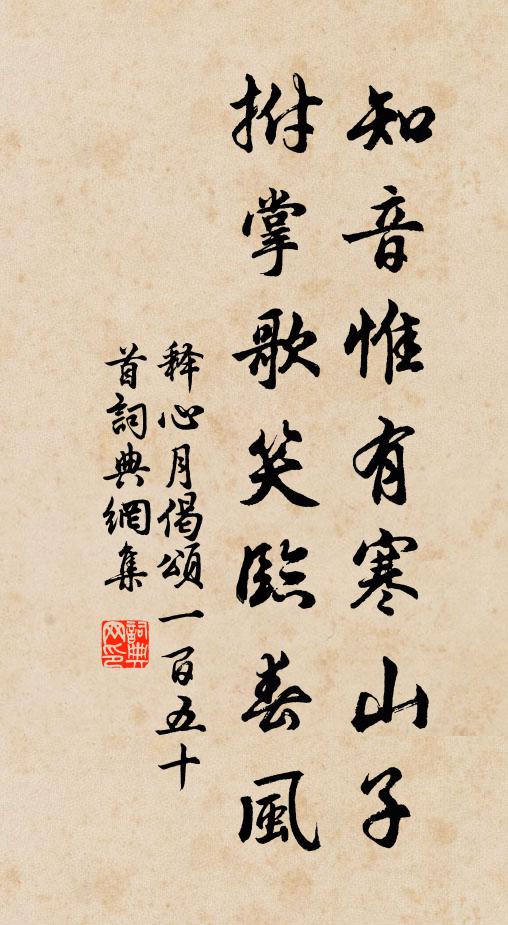 知音惟有寒山子
拊掌歌笑臨春風
释心月偈頌一百五十
首詞典網集
詞典網印